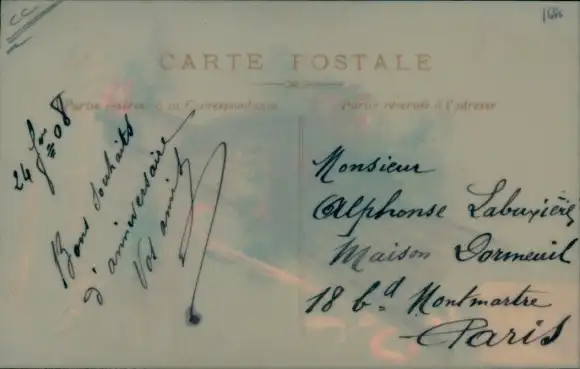 cc
CARTE POSTALE
Partie réservée à la Correspondance
Partie réservée à l'adresse
24 Jer 08
Bons souhaits
d'anniversaire
Vos amis
Monsieur
Alphonse Labuxière
Maison Dormeuil
18 bd Montmartre
Paris